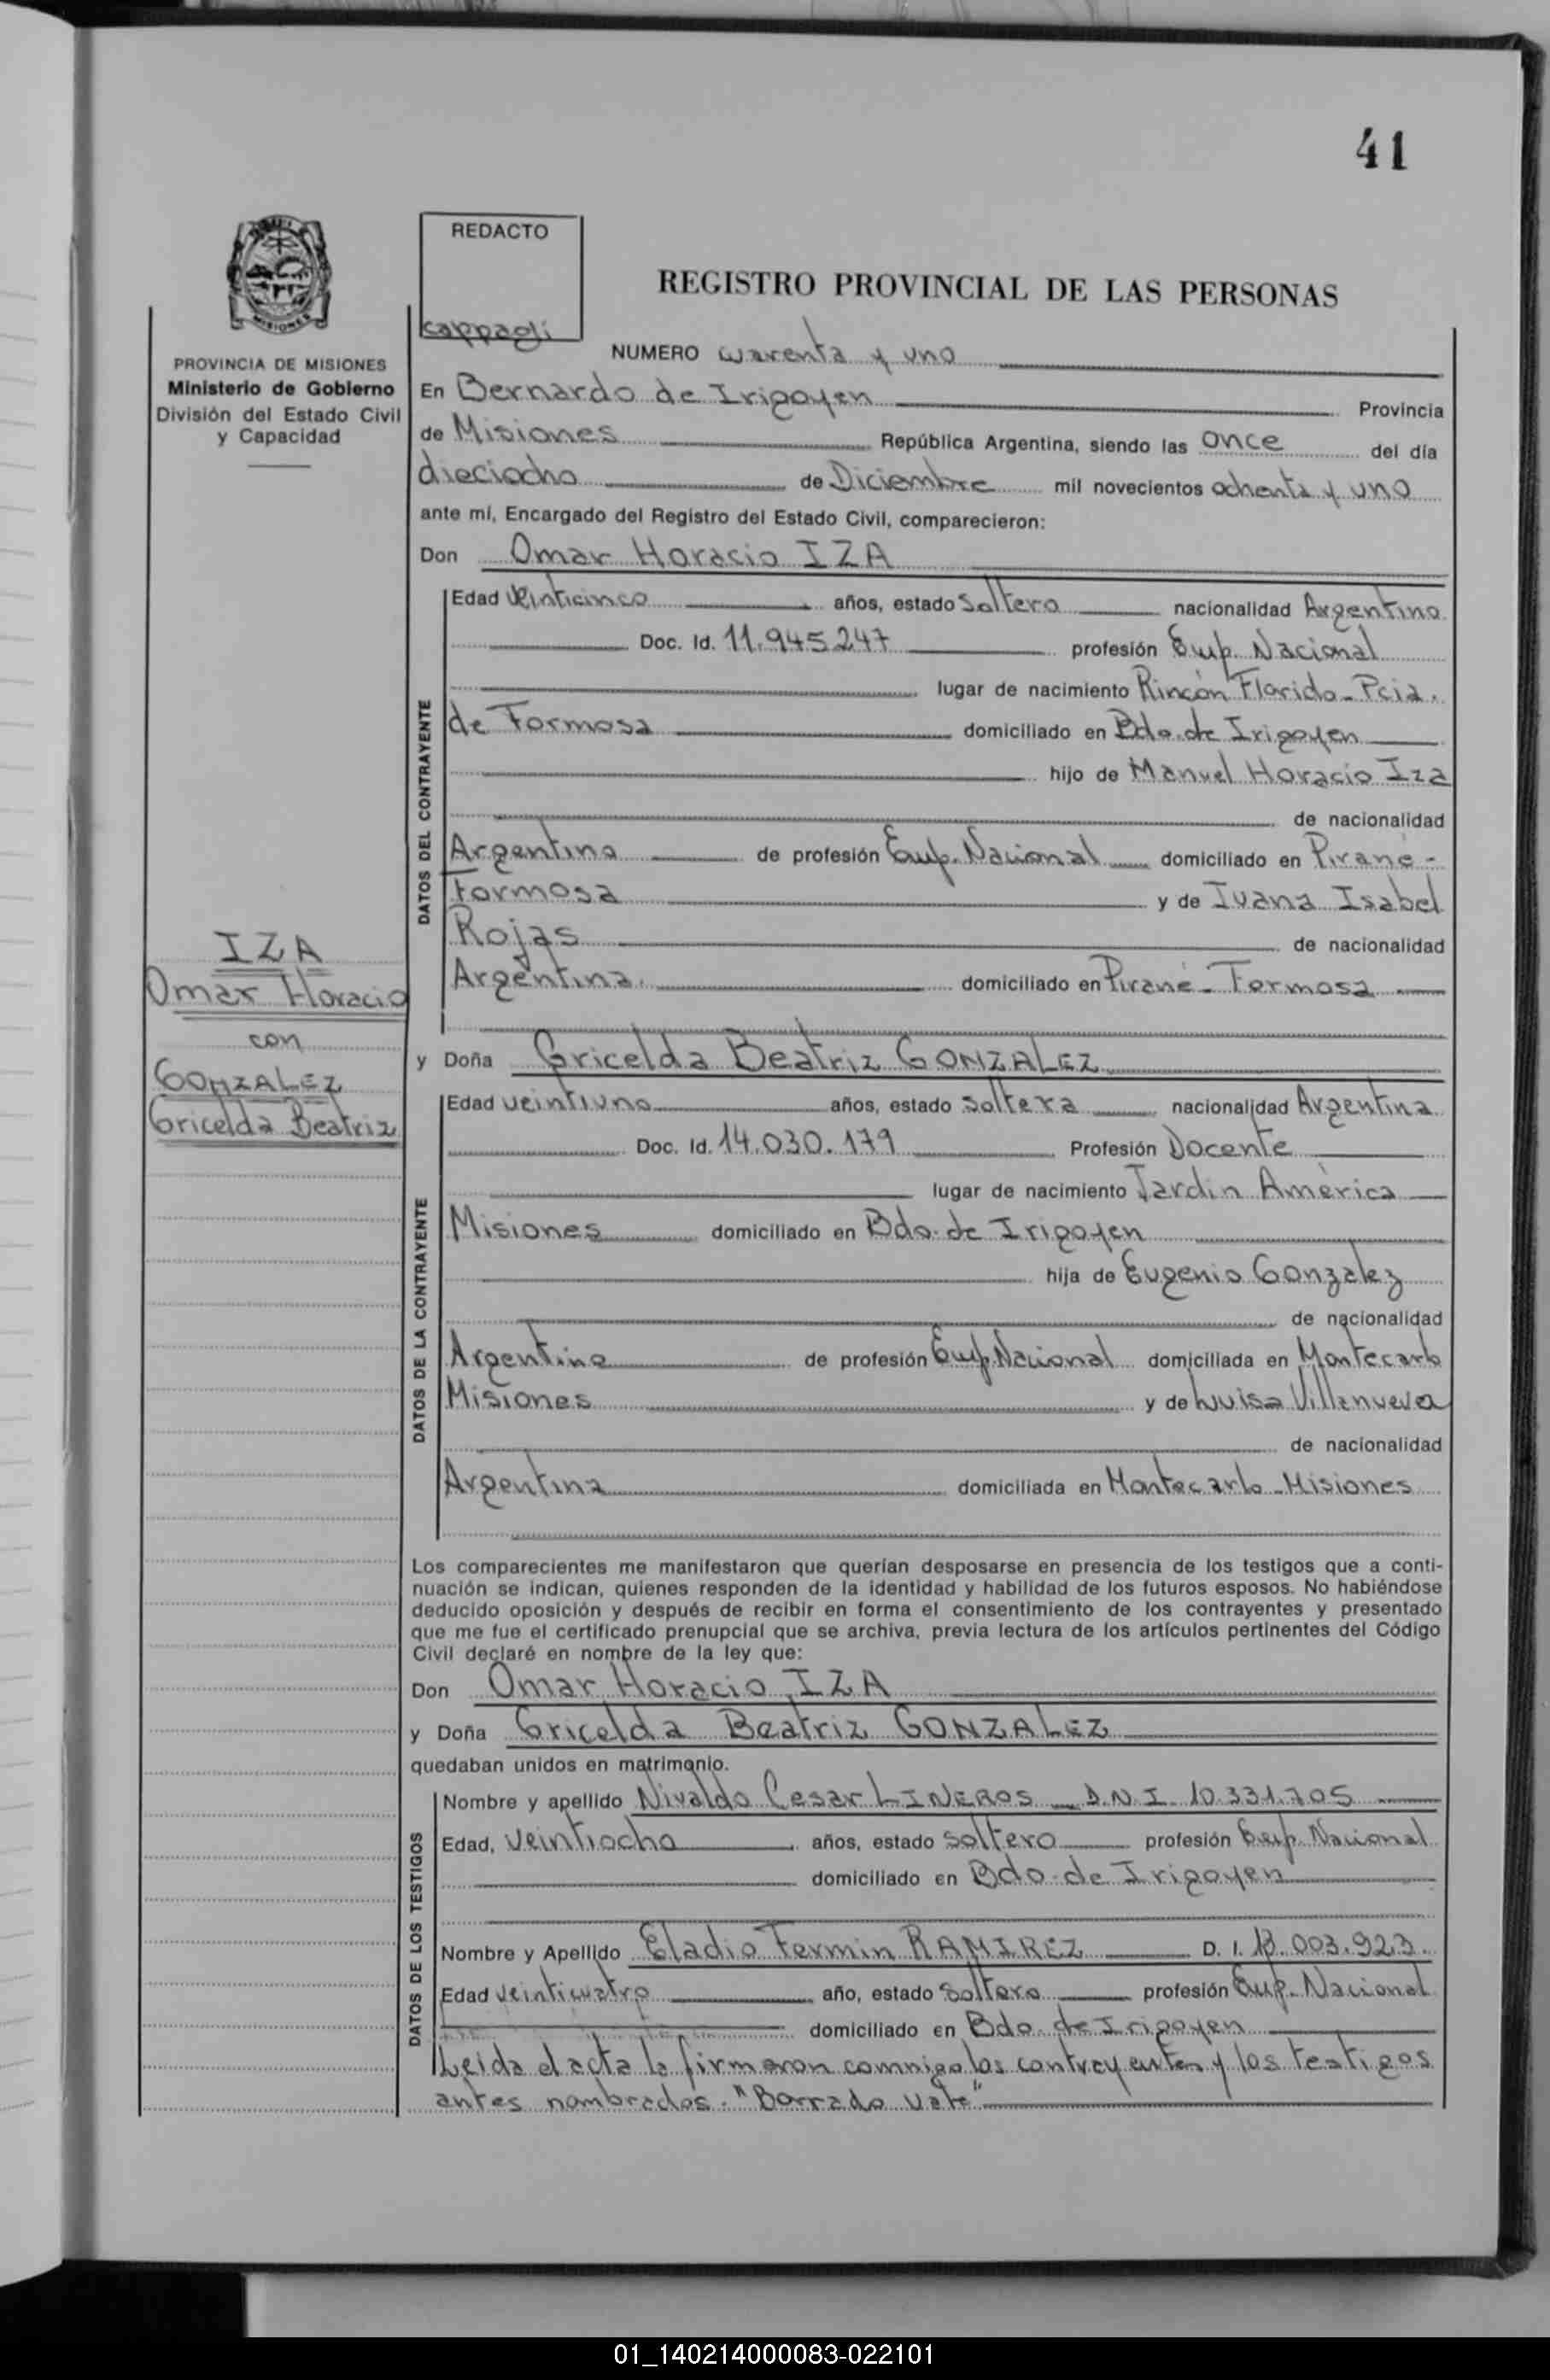 41
REDACTO
cappagli
REGISTRO PROVINCIAL DE LAS PERSONAS
PROVINCIA DE MISIONES
Ministerio de Gobierno
División del Estado Civil
y Capacidad
NUMERO cuarenta y uno
En Bernardo de Irigoyen Provincia
de Misiones República Argentina, siendo las once del día
dieciocho de Diciembre mil novecientos ochenta y uno
ante mí, Encargado del Registro del Estado Civil, comparecieron:
Don Omar Horacio IZA
DATOS DEL CONTRAYENTE
Edad Veinticinco años, estado Soltero nacionalidad Argentino
Doc. Id. 11.945.247 profesión Emp. Nacional
lugar de nacimiento Rincón Florido - Pcia.
de Formosa domiciliado en Bdo. de Irigoyen
hijo de Manuel Horacio Iza
de nacionalidad
Argentino de profesión Emp. Nacional domiciliado en Pirané -
Formosa y de Juana Isabel
Rojas de nacionalidad
Argentina. domiciliado en Pirané - Formosa
IZA
Omar Horacio
con
GONZALEZ
Gricelda Beatriz
y Doña Gricelda Beatriz GONZALEZ
DATOS DE LA CONTRAYENTE
Edad veintiuno años, estado soltera nacionalidad Argentina
Doc. Id. 14.030.179 Profesión Docente
lugar de nacimiento Jardín América
Misiones domiciliado en Bdo. de Irigoyen
hija de Eugenio Gonzalez
de nacionalidad
Argentino de profesión Emp. Nacional domiciliada en Montecarlo
Misiones y de Luisa Villanueva
de nacionalidad
Argentina domiciliada en Montecarlo - Misiones
Los comparecientes me manifestaron que querían desposarse en presencia de los testigos que a conti-
nuación se indican, quienes responden de la identidad y habilidad de los futuros esposos. No habiéndose
deducido oposición y después de recibir en forma el consentimiento de los contrayentes y presentado
que me fue el certificado prenupcial que se archiva, previa lectura de los artículos pertinentes del Código
Civil declaré en nombre de la ley que:
Don Omar Horacio IZA
y Doña Gricelda Beatriz GONZALEZ
quedaban unidos en matrimonio.
DATOS DE LOS TESTIGOS
Nombre y apellido Nivaldo Cesar LINEROS - D.N.I. 10.331.705
Edad, veintiocho años, estado soltero profesión Emp. Nacional
domiciliado en Bdo. de Irigoyen
Nombre y Apellido Eladio Fermin RAMIREZ D. I. 13.003.923.
Edad veinticuatro año, estado soltero profesión Emp. Nacional
domiciliado en Bdo. de Irigoyen
Leida el acta la firmaron conmigo los contrayentes y los testigos
antes nombrados. "Borrado vale"
01_140214000083-022101